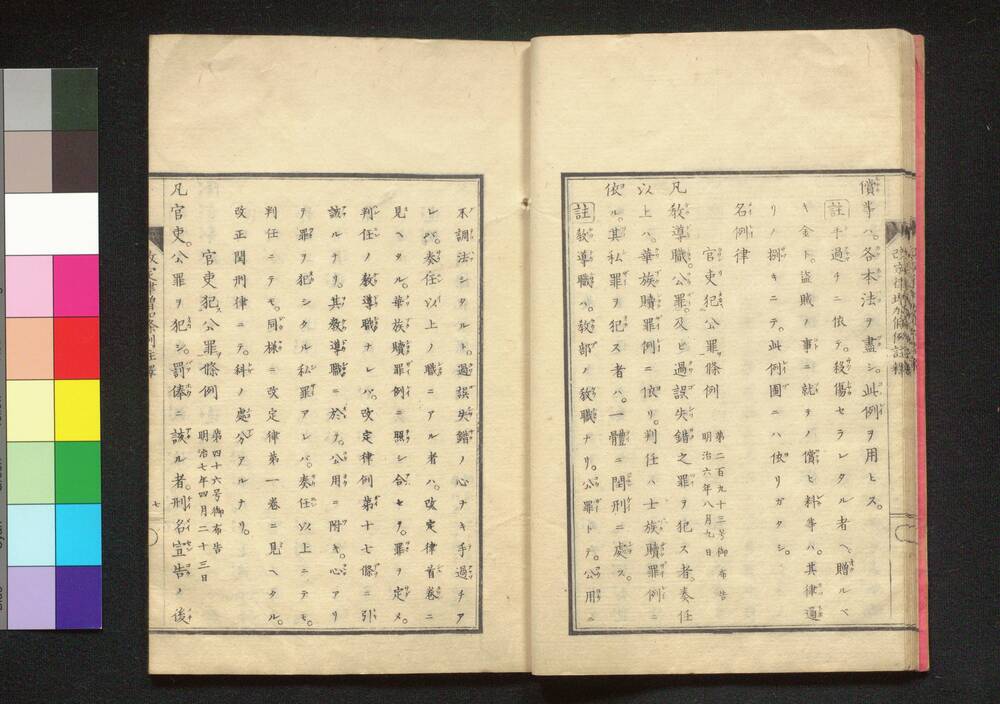 償半ハ。各本法ヲ盡シ。此例ヲ用ヒス。
註 手過チニ依テ。殺傷セラレタル者ヘ。贈ルベ
キ金ト。盜賊ノ事ニ就キノ償ヒ料等ハ。其律通
リノ捌キニテ。此例圖ニハ依リガタシ。
名例律
官吏犯公罪條例
第二百九十三号御布告
明治六年八月九日
凡教導職。公罪。及ヒ過誤失錯之罪ヲ犯ス者。奏任
以上ハ。華族贖罪例ニ依リ。判任ハ士族贖罪例ニ
依ル。其私罪ヲ犯ス者ハ。一體ニ閏刑ニ處ス。
註 教導職ハ。教部ノ教職ナリ。公罪トテ。公用ニ
不調法シタルト。過誤失錯ノ心ナキ手過チア
レバ。奏任以上ノ職ニアル者ハ。改定律首卷ニ
見ヘタル。華族贖罪例ニ照シ合セテ。罪ヲ定メ。
判任ノ教導職ナレバ。改定律例第十七條ニ引
誠ルナリ。其教導職ニ於テ。公用ニ附キ。心アリ
テ罪ヲ犯シタル私罪アレバ。奏任以上ニテモ。
判任ニテモ。同樣ニ改定律第一卷ニ見ヘタル。
改正閏刑律ニテ。科ノ處分アルナリ。
官吏犯公罪條例
第四十六号御布告
明治七年四月二十三日
凡官吏。公罪ヲ犯シ。罰俸ニ該ル者。刑名宣告ノ後
七